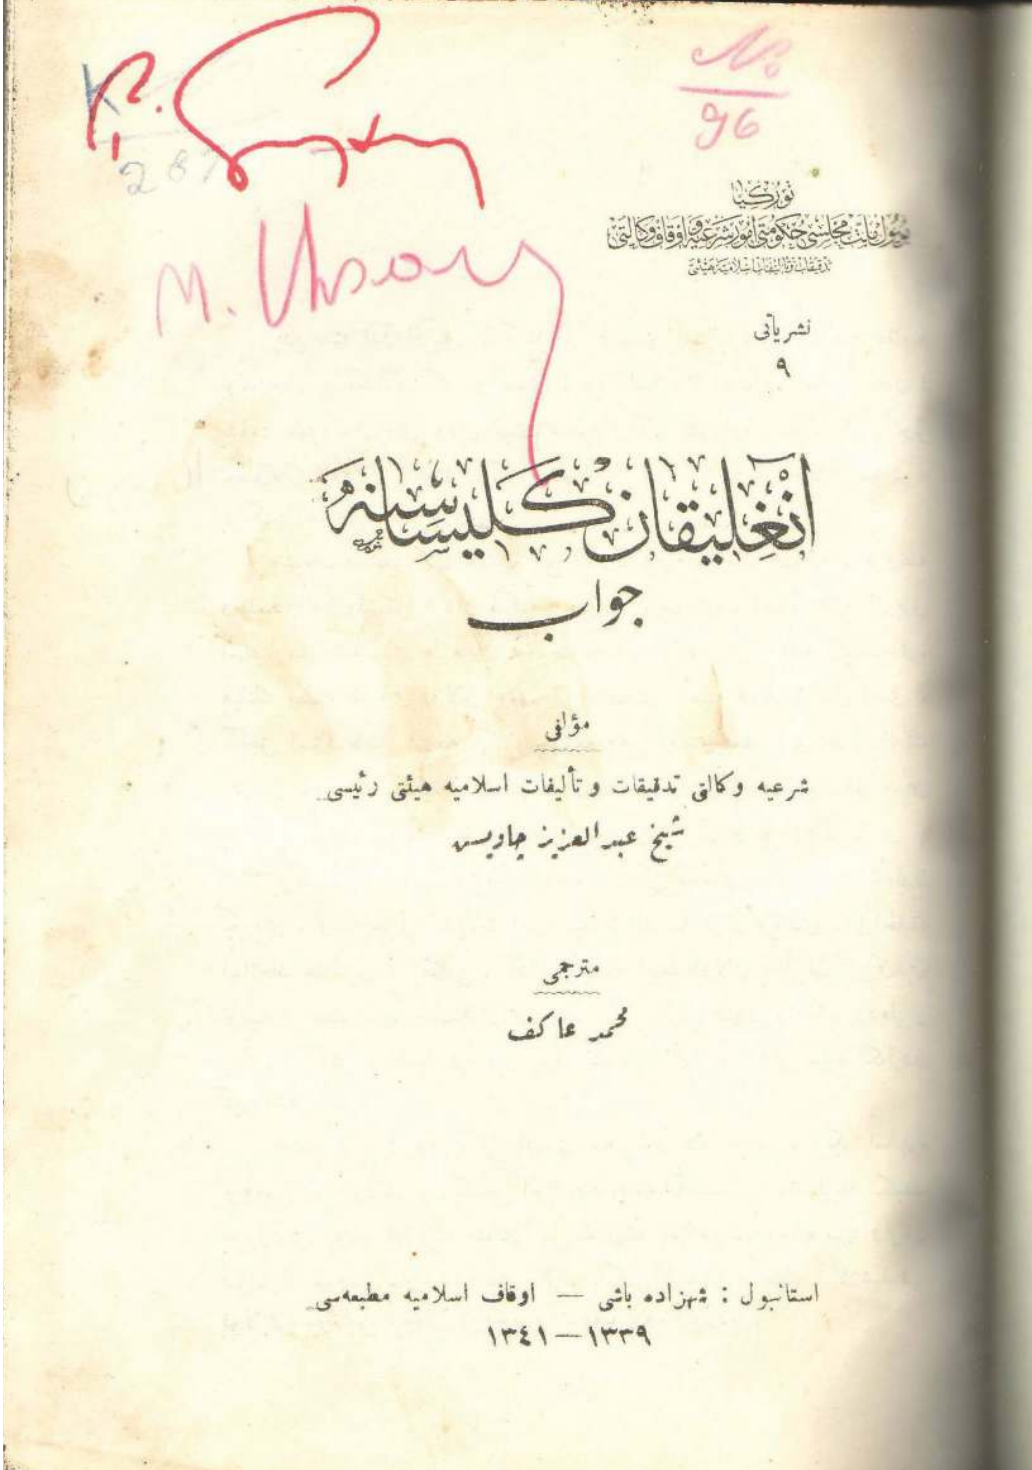 №
96
تورکیا
بیوك ملت مجلسی حکومتی امور شرعیه و اوقاف وکالتی
تدقیقات و تألیفات اسلامیه هیئتی
نشریاتی
٩
آنغلیقان کلیساسنه
جواب
مؤلفی
شرعیه وکالتی تدقیقات و تألیفات اسلامیه هیئتی رئیسی
شیخ عبد العزیز چاویش
مترجمی
محمد عاکف
استانبول : شهزاده باشی — اوقاف اسلامیه مطبعه‌سی
١٣٣٩—١٣٤١